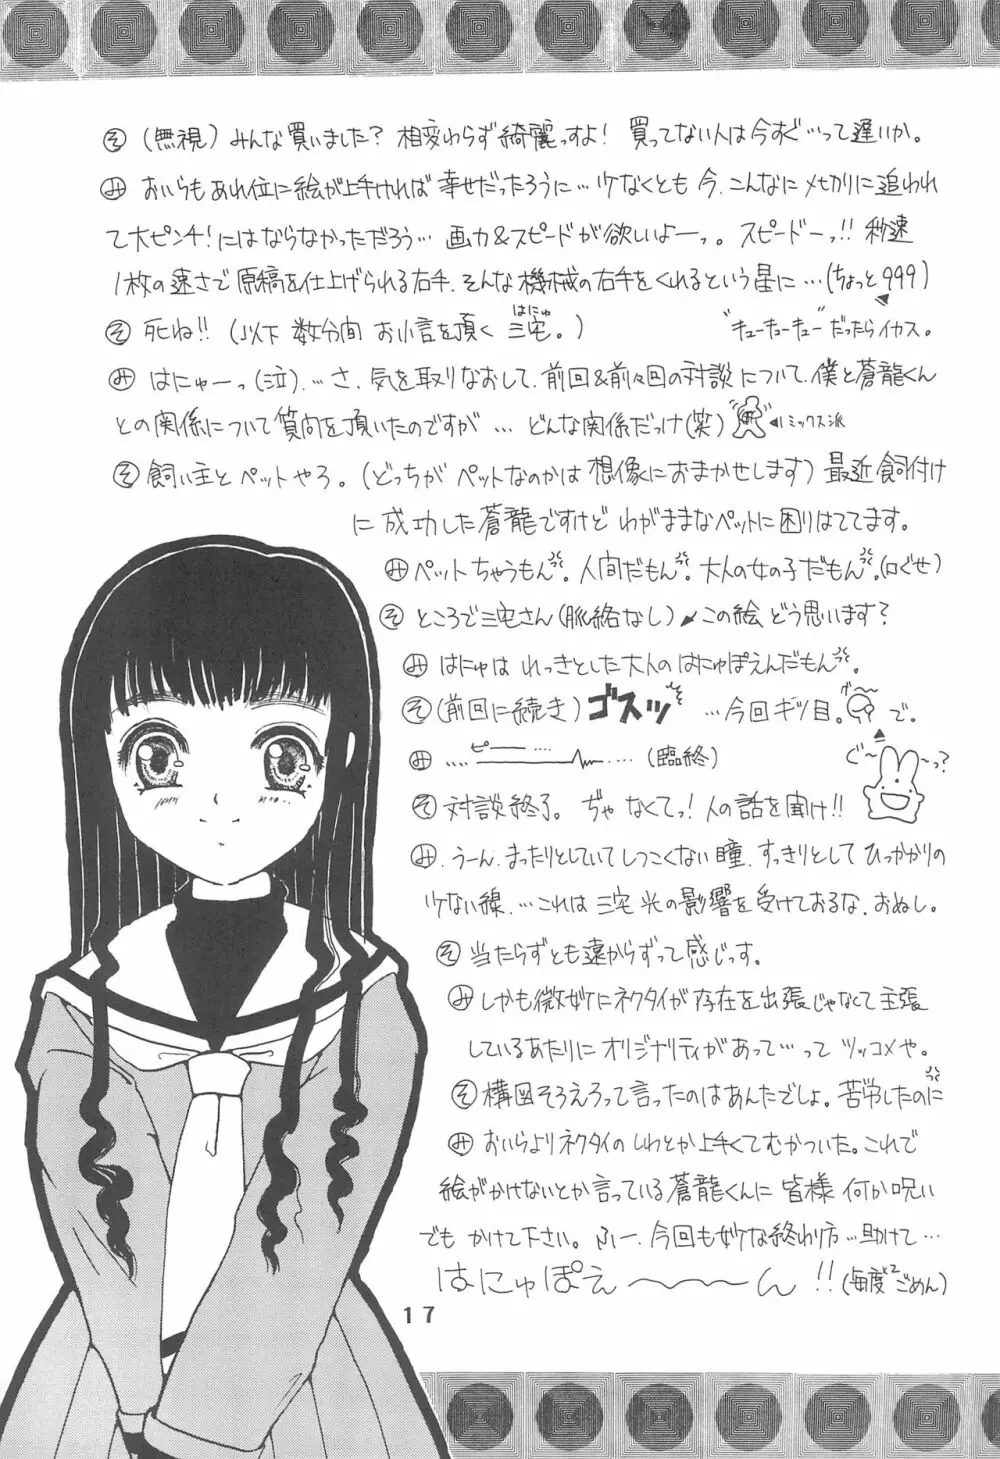 そ (無視) みんな買いました? 相変わらず綺麗っすよ! 買ってない人は今すぐ…って遅いか。
み おいらもあれ位に絵が上手ければ幸せだったろうに…少なくとも今、こんなにメセカリに追われ
て大ピンチ!にはならなかっただろう… 画力&スピードが欲しいよーっ。スピードーっ!! 秒速
1枚の速さで原稿を仕上げられる右手、そんな機械の右手をくれるという星に…(ちょっと999)
"キューキューキュー"だったらイカス。
はにゅ
そ 死ね!! (以下 数分間 お小言を頂く 三宅。)
み はにゅーっ(泣)…さ、気を取りなおして、前回&前々回の対談について、僕と蒼龍くん
との関係について質問を頂いたのですが … どんな関係だっけ(笑)
ミックス派
そ 飼い主とペットやろ。(どっちがペットなのかは想像におまかせします) 最近飼付け
に成功した蒼龍ですけど わがままなペットに困りはててます。
み ペットちゃうもん。人間だもん。大人の女の子だもん。(口ぐせ)
そ ところで三宅さん(脈絡なし) この絵 どう思います?
み はにゅは れっきとした大人のはにゅぽえんだもん。
そ (前回に続き) ゴスッ …今回ギツ目。で。
み …. ピー …. (臨終)
ぐ〜 〜っ?
そ 対談終了。ぢゃなくてっ! 人の話を聞け!!
み うーん、まったりとしていてしつこくない瞳、すっきりとしてひっかかりの
少ない線、…これは 三宅 光の影響を受けておるな、おぬし。
そ 当たらずとも遠からずって感じっす。
み しかも微妙にネクタイが存在を出張じゃなくて主張
しているあたりにオリジナリティがあって…って ツッコメや。
そ 構図そろえろって言ったのはあんたでしょ。苦労したのに
み おいらよりネクタイのしわとか上手くてむかついた。これで
絵がかけないとか言っている蒼龍くんに皆様 何か呪い
でも かけて下さい。ふー、今回も妙な終わり方…助けて…
はにゅぽえ〜〜〜ん!! (毎度×2ごめん)
17